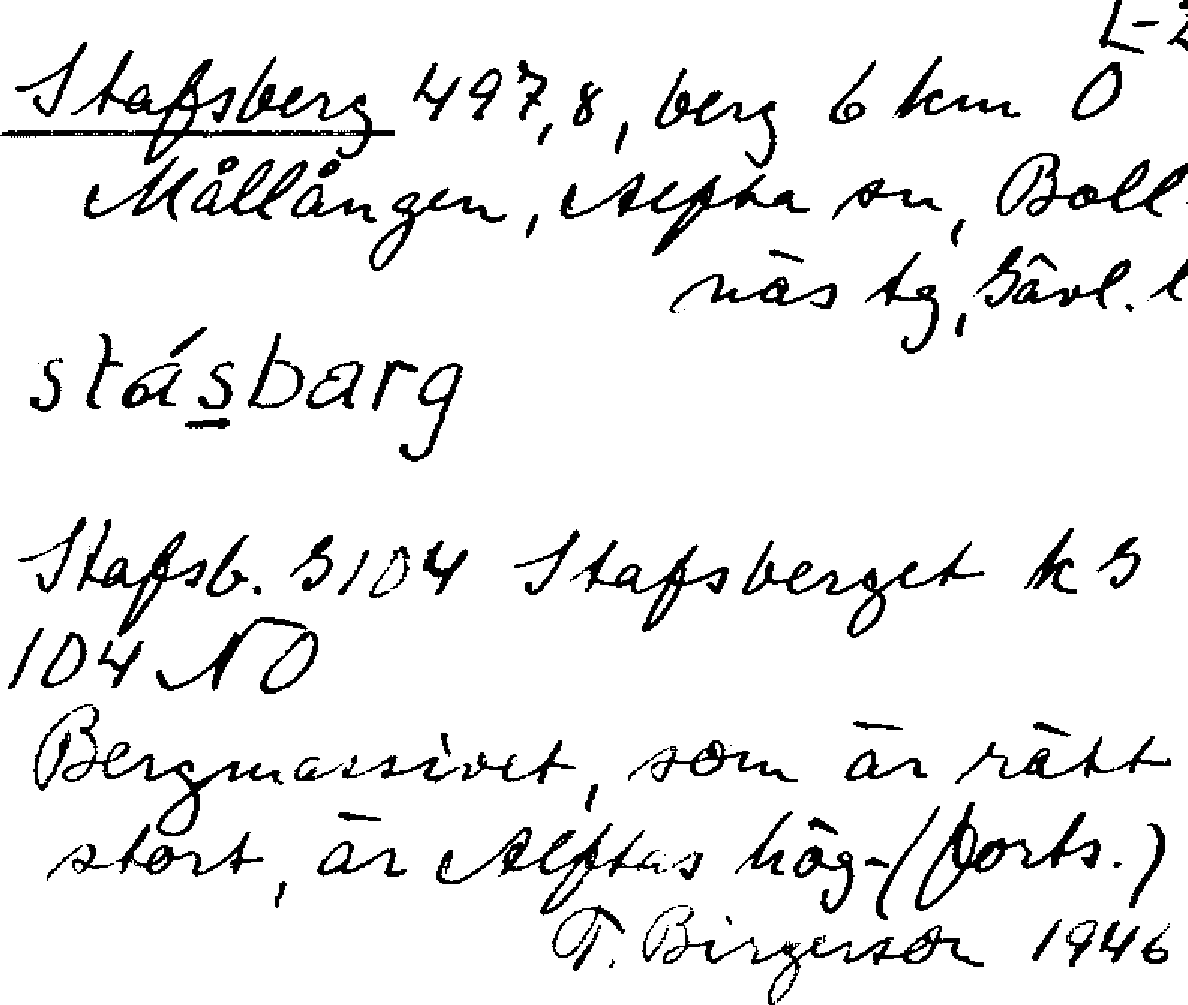 Stafsberg 497,8, berg 6 km Ö
Mållången, Alfta sn, Boll-
näs tg, Gävl. l
stásbarg
Stafsb. G104 Stafsberget k G
104 NÖ
Bergmassivet, som är rätt
stort, är Alftas hög-(forts.)
T. Birgerson 1946